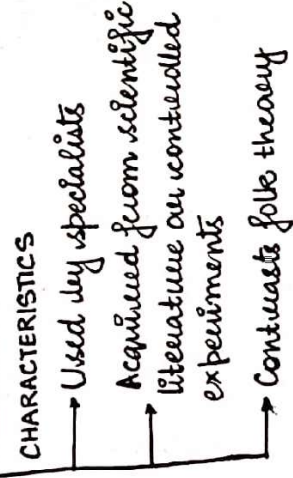 CHARACTERISTICS
Used by specialists
Acquired from scientific
literature or controlled
experiments
Contrasts folk theory